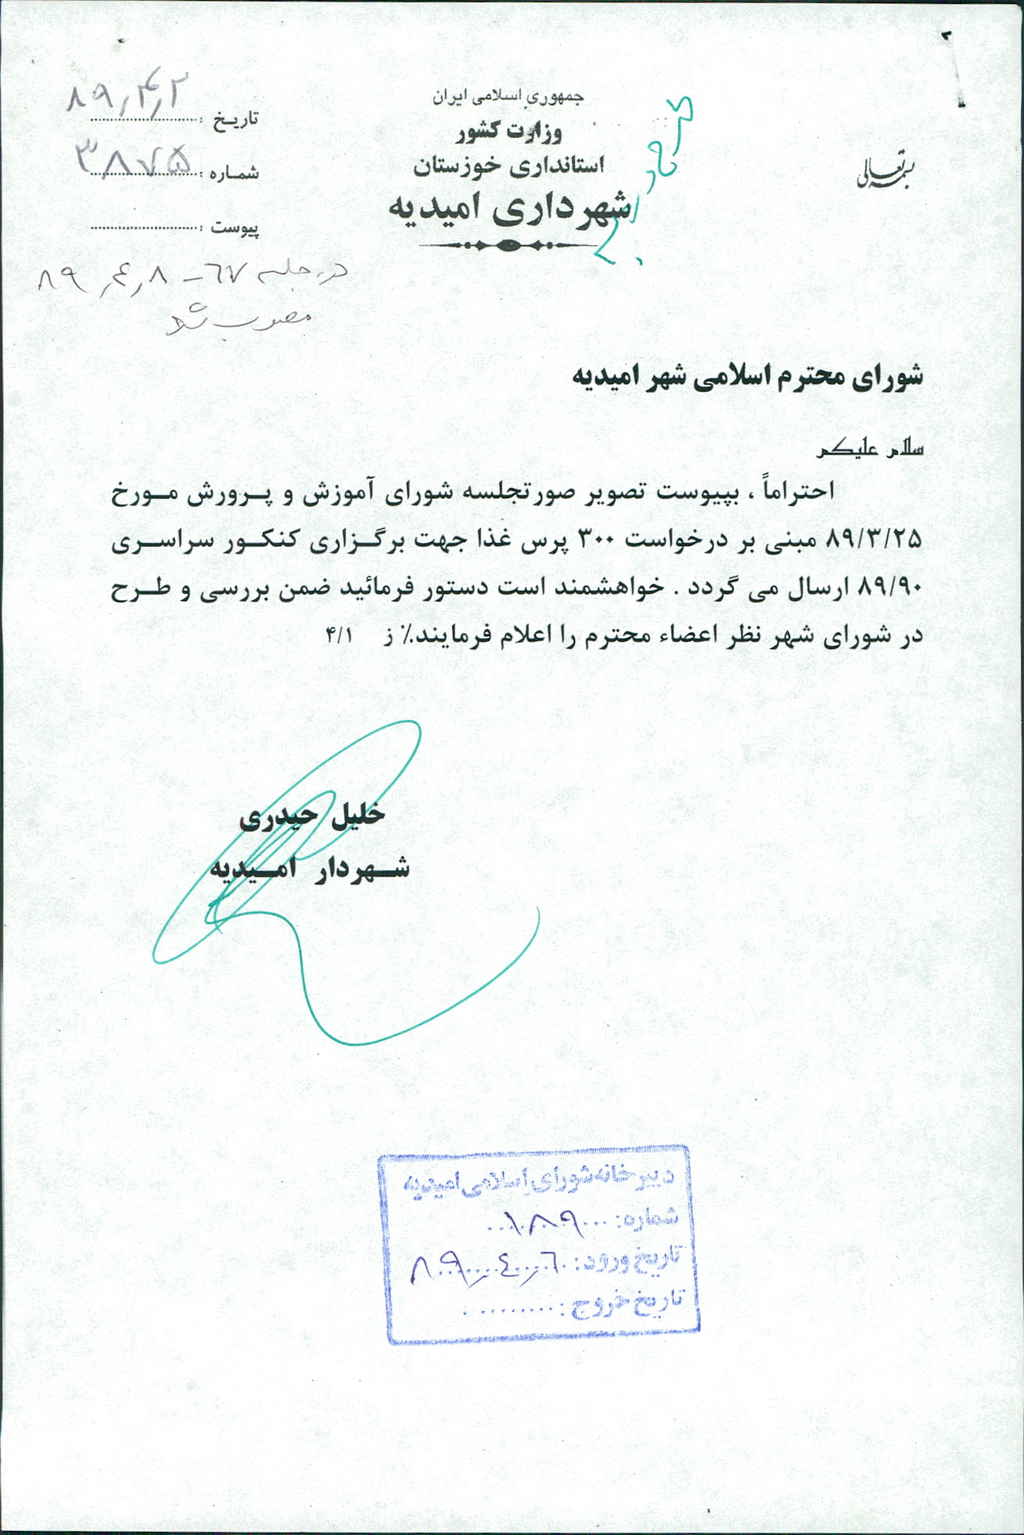 بسمه تعالی
جمهوری اسلامی ایران
وزارت کشور
استانداری خوزستان
شهرداری امیدیه
تاریخ : ۸۹٫۴٫۲
شماره : ۳۸۷۵
پیوست :
در جلسه ۶۷ - ۸٫۴٫۸۹
مصوب شد
شورای محترم اسلامی شهر امیدیه
سلام علیکم
احتراماً ، بپیوست تصویر صورتجلسه شورای آموزش و پرورش مورخ
۸۹/۳/۲۵ مبنی بر درخواست ۳۰۰ پرس غذا جهت برگزاری کنکور سراسری
۸۹/۹۰ ارسال می گردد . خواهشمند است دستور فرمائید ضمن بررسی و طرح
در شورای شهر نظر اعضاء محترم را اعلام فرمایند.٪ ز ۴/۱
خلیل حیدری
شهردار امیدیه
دبیرخانه شورای اسلامی امیدیه
شماره: ۱۸۹
تاریخ ورود: ۸۹٫۴٫۶
تاریخ خروج :